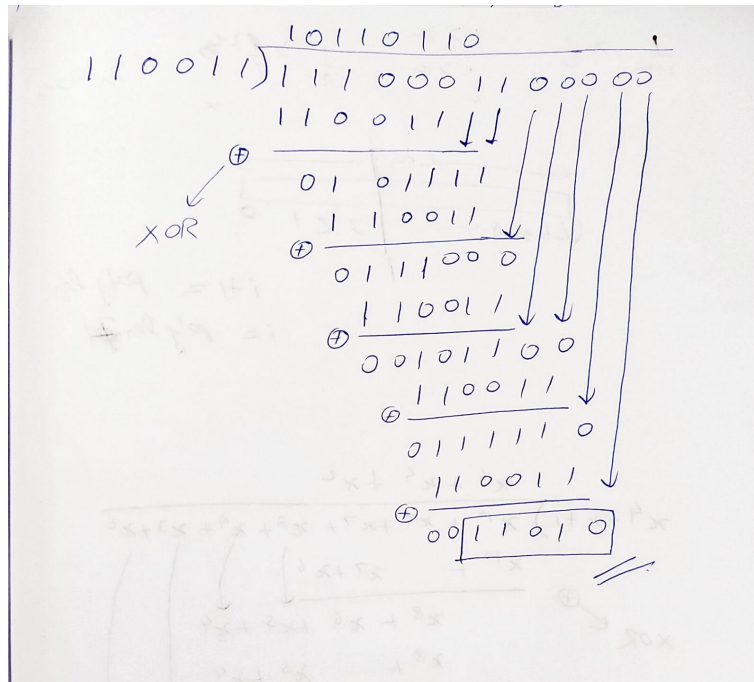 1 0 1 1 0 1 1 0
1 1 0 0 1 1 ) 1 1 1 0 0 0 1 1 0 0 0 0 0
1 1 0 0 1 1
⊕
0 1 0 1 1 1 1
XOR
1 1 0 0 1 1
⊕
0 1 1 1 0 0 0
1 1 0 0 1 1
⊕
0 0 1 0 1 1 0 0
1 1 0 0 1 1
⊕
0 1 1 1 1 1 0
1 1 0 0 1 1
⊕
0 0 1 1 0 1 0